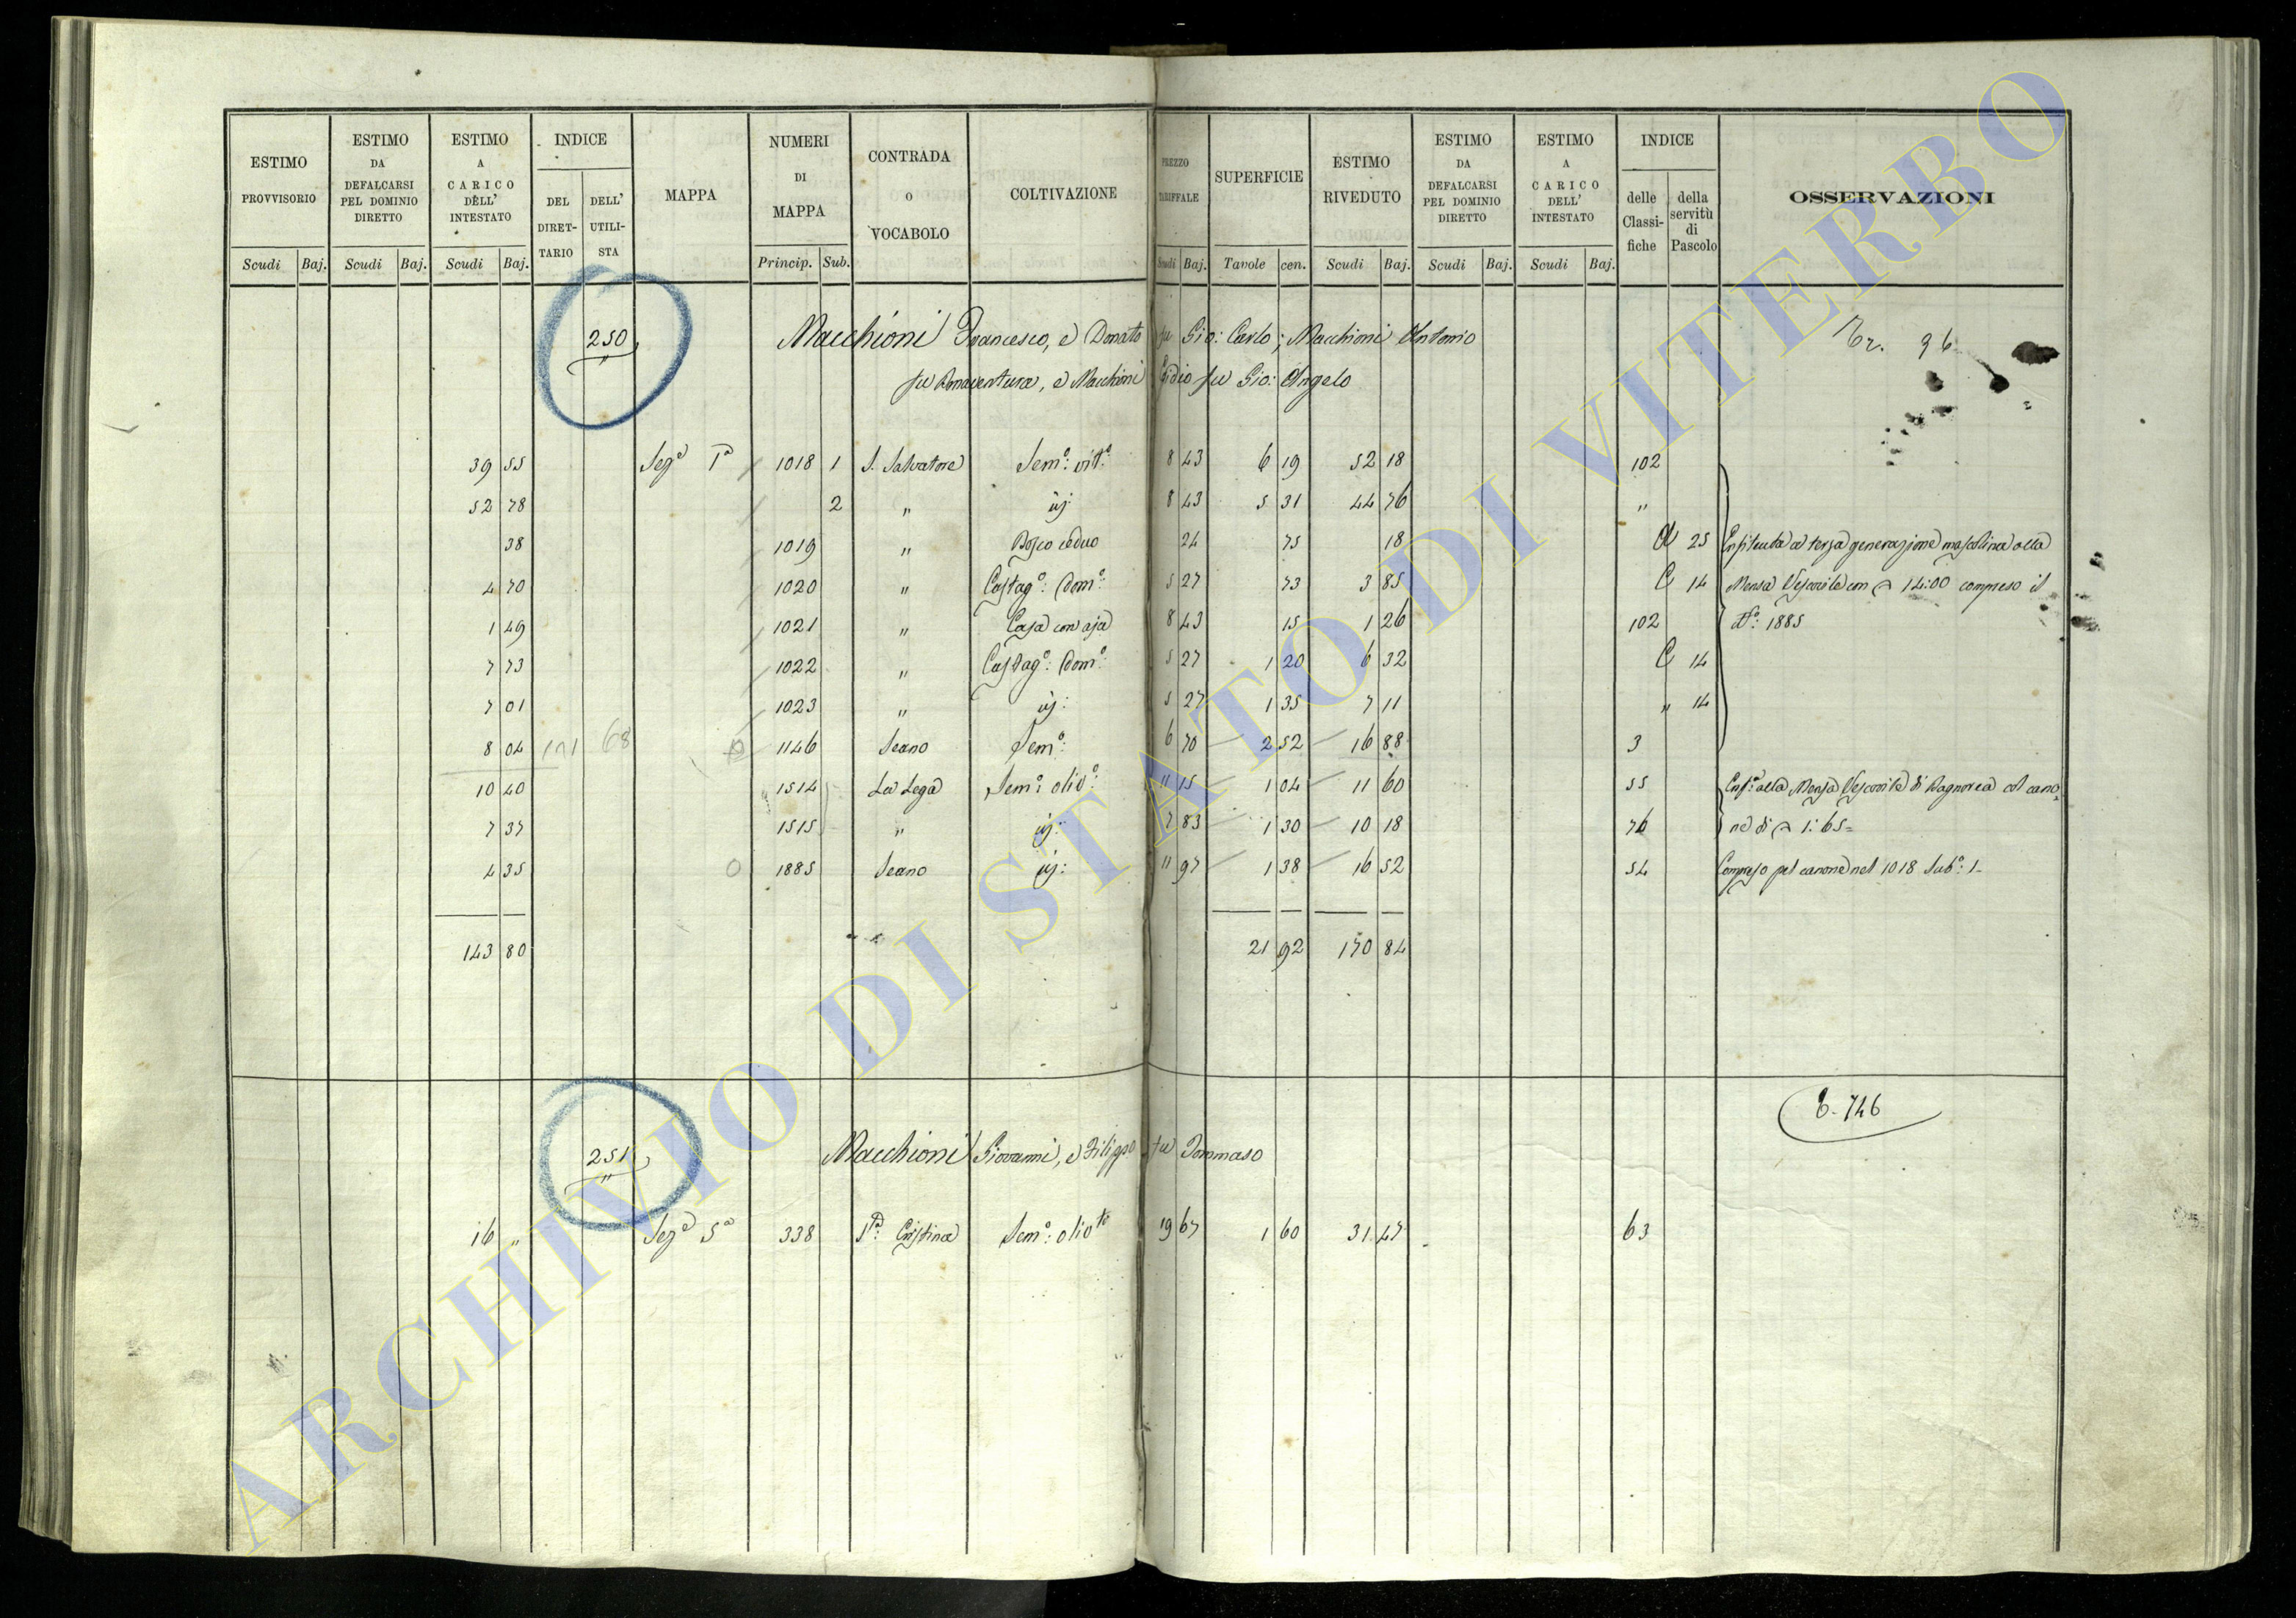 ESTIMO PROVVISORIO | ESTIMO DA DEFALCARSI PEL DOMINIO DIRETTO | ESTIMO A CARICO DELL' INTESTATO | INDICE DEL DIRETTARIO | DELL' UTILISTA | MAPPA | NUMERI DI MAPPA | CONTRADA O VOCABOLO | COLTIVAZIONE | PREZZO TARIFFALE | SUPERFICIE | ESTIMO RIVEDUTO | ESTIMO DA DEFALCARSI PEL DOMINIO DIRETTO | ESTIMO A CARICO DELL' INTESTATO | INDICE delle Classifiche | della servitù di Pascolo | OSSERVAZIONI
Scudi Baj. Scudi Baj. Scudi Baj. Princip. Sub. Scudi Baj. Tavole cen. Scudi Baj. Scudi Baj. Scudi Baj.
250 Macchioni Francesco, e Donato fu Gio: Carlo; Macchioni Antonio 96
fu Bonaventura, e Macchioni Egidio fu Gio: Angelo
39 55 Sez.e 1a 1018 1 S. Salvatore Sem.o: vit.o: 8 43 6 19 52 18 102
52 78 2 " id: 8 43 5 31 44 76 "
38 1019 " Bosco ceduo 24 75 18 A 25 Enfiteuta a terza generazione mascolina alla
4 70 1020 " Castag.o: dom.o: 5 27 73 3 85 C 14 Mensa Vescovile con 14:00 compreso il
1 49 1021 " Casa con aja 8 43 15 1 26 102 N.o: 1885
7 73 1022 " Castag.o: dom.o: 5 27 1 20 6 32 C 14
7 01 1023 " id: 5 27 1 35 7 11 " 14
8 04 68 1146 Seano Sem.o: 6 70 2 52 16 88 3
10 40 1514 La Lega Sem.o: oliv.o: 11 15 1 04 11 60 55 Enf.a: alla Mensa Vescovile di Bagnorea col cano
7 37 1515 " id: 7 83 1 30 10 18 76 ne di 1:65=
4 35 0 1885 Seano id: 11 97 1 38 16 52 54 Compreso pel canone nel 1018 Sub.o: 1.
143 80 21 92 170 84
6-746
251 Macchioni Giovanni, e Filippo fu Tommaso
16 " Sez.e 5a 338 S.ta: Cristina Sem.o: olio.to 19 67 1 60 31 47 63
ARCHIVIO DI STATO DI VITERBO